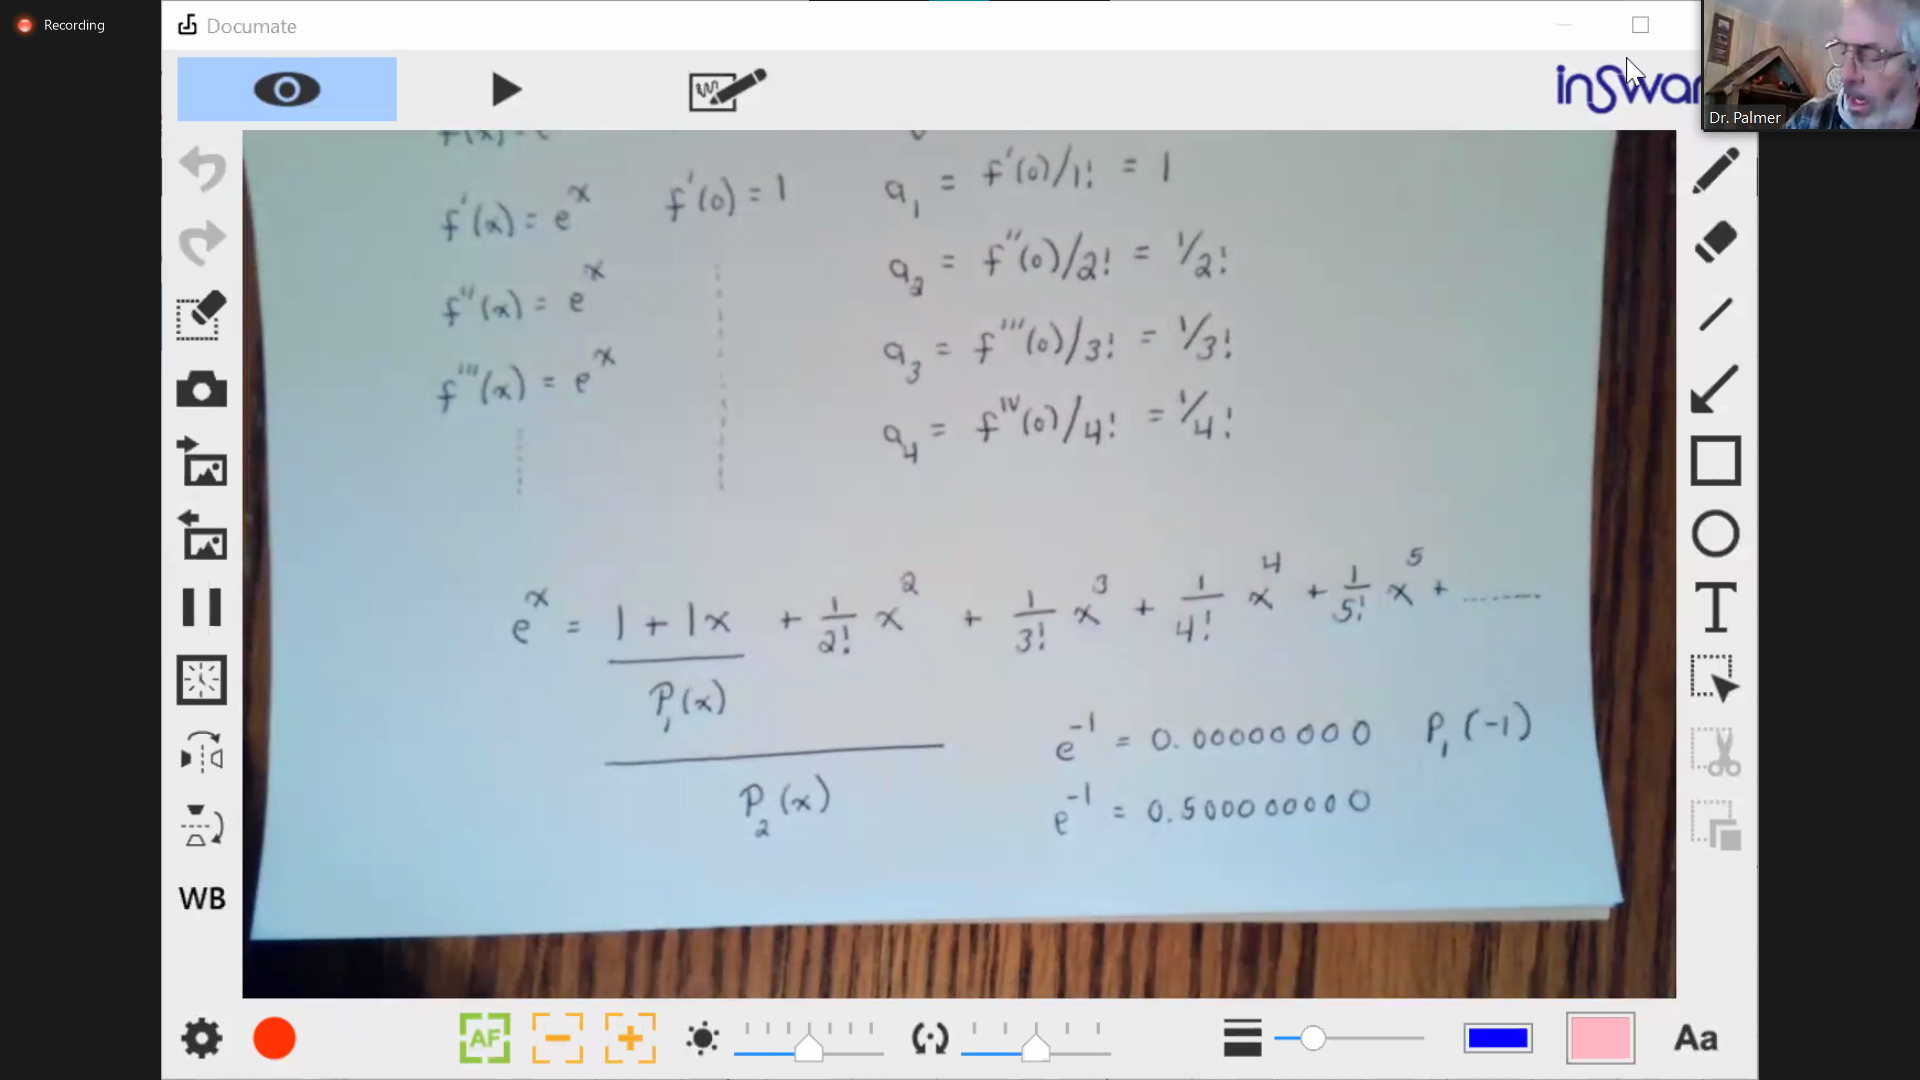 Recording
Documate
inSwa
Dr. Palmer
f'(x) = e^x f'(0) = 1 a_1 = f'(0)/1! = 1
f''(x) = e^x a_2 = f''(0)/2! = 1/2!
f'''(x) = e^x a_3 = f'''(0)/3! = 1/3!
a_4 = f^IV(0)/4! = 1/4!
e^x = 1 + 1x + 1/2! x^2 + 1/3! x^3 + 1/4! x^4 + 1/5! x^5 + ........
P_1(x)
e^-1 = 0.00000000 P_1(-1)
P_2(x)
e^-1 = 0.500000000
WB
T
AF
Aa